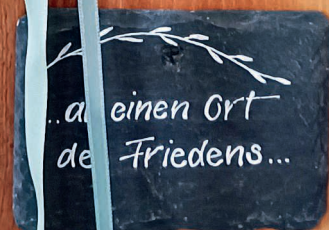 einen Ort
Friedens...